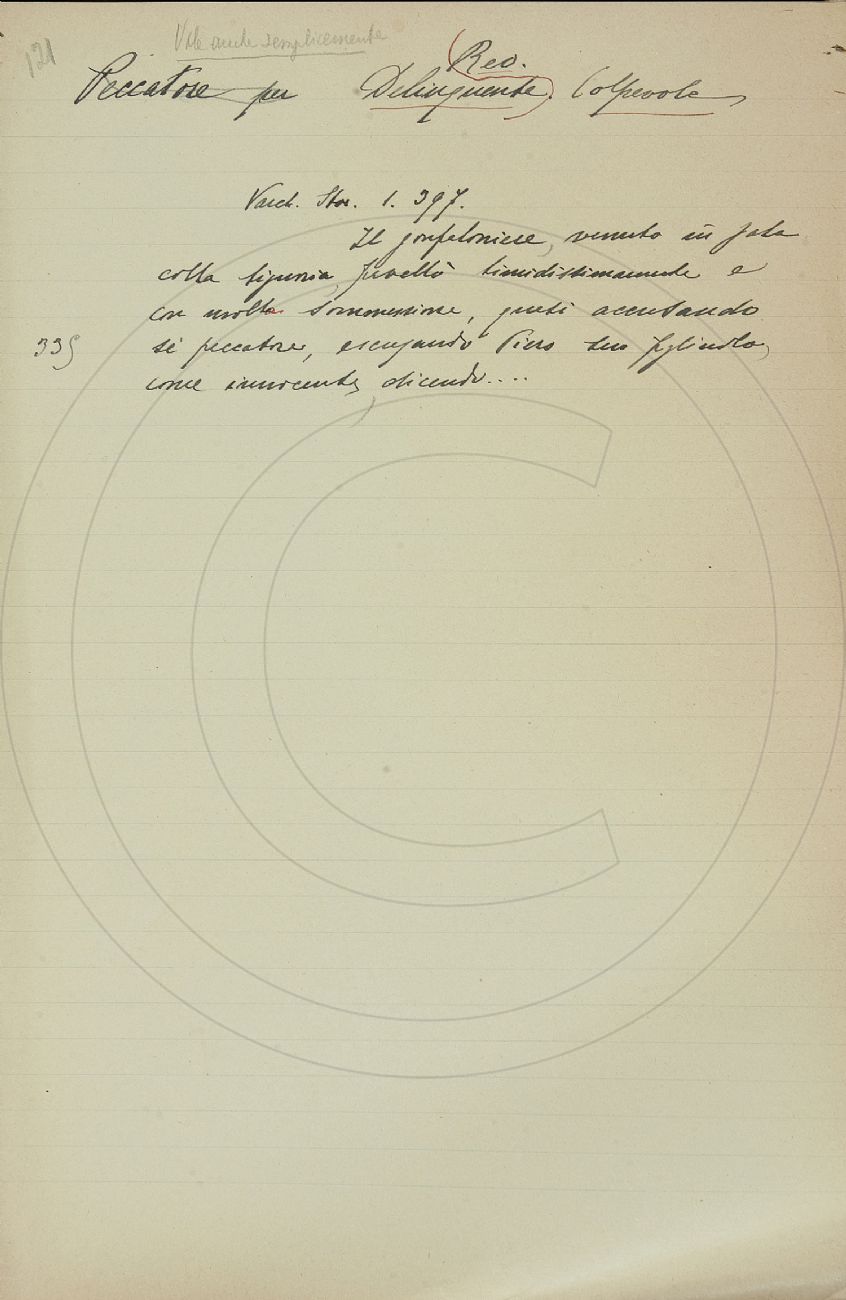 121
Vale anche semplicemente
Reo.
Peccatore per Delinquente. Colpevole,
Varch. Stor. 1. 397.
Il gonfaloniere, venuto in sala
colla signoria, favellò timidissimamente e
con molta sommessione, quasi accusando
sè peccatore, escusando Piero suo figliuolo,
335
come innocente, dicendo....